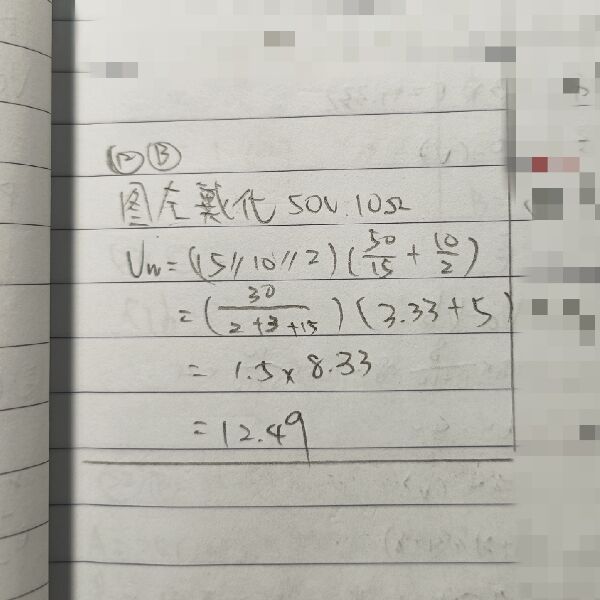 (12) (B)
图左戴化 50V.10Ω
Vn = (15//10//2)(50/15 + 10/2)
= (30/(2+3+15))(3.33+5)
= 1.5×8.33
= 12.49